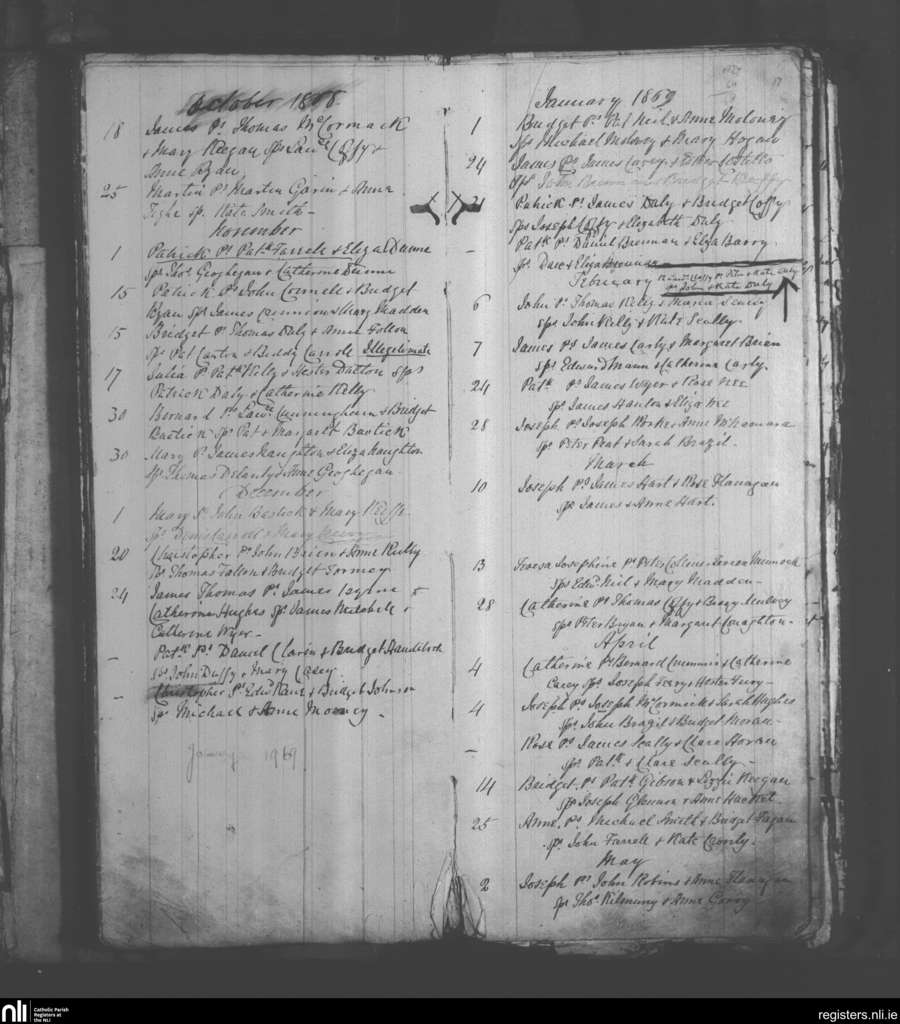 October 1868.
18 James Ps Thomas McCormack
& Mary Keegan Sps Lawce Coffy &
Anne
25 Martin Ps Martin Gavin & Anne
Tighe Sp. Kate Smith -
November
1 Patrick Ps Patk Farrell & Eliza Dunne
Sps Thos Geoghegan & Catherine Dunne
15 Patrick Ps John & Budget
Ryan Sps James & Mary Madden
15 Bridget Ps Thomas Daly & Anne Fallon
Sps Pat & Biddy Carroll Illegitimate
17 Julia Ps Patk Kelly & Hester Dalton Sps
Patrick Daly & Catherine Kelly
30 Bernard Ps Lawce Cunningham & Bridget
Bastick Sps Pat & Margaret Bastick
30 Mary Ps James Naughton & Eliza Naughton
Sps Thomas Delanty & Anne Geoghegan
December
1 Mary Ps John & Mary
Sps & Mary
20 Christopher Ps John Brien & Anne
Sps Thomas Fallon & Budget Tormey
24 James Thomas Ps James &
Catherine Hughes Sps James Mitchell &
Catherine Wyer -
- Patk Ps Daniel & Budget
Sps John Duffy & Mary Casey
- Christopher Ps Edwd Kane & Bridget Johnson
Sps Michael & Anne Mooney -
January 1969
January 1869
1 Budget Ps Pat Neil & Anne Moloney
Sps Michael Moloney & Mary Hogan
24 James Ps James Carey & Esther Costello
Sps John and Bridget Duffy
21 Patrick Ps James Daly & Bridget Coffy
Sps Joseph Coffy & Elizabeth Daly.
- Patk Ps Daniel Brennan & Eliza Barry
Sps & Eliza
February
Coffy Ps Peter & Kate Daly
Sps John & Kate Daly
6 John Ps Thomas Kelly & Maria Scully
Sps John Kelly & Kate Scully.
7 James Ps James Carty & Margaret Brien
Sps Edward Mann & Catherine Carty.
24 Patk Ps James Wyer & Rose Nee
Sps James Hanlon & Eliza Nee
28 Joseph Ps Joseph & Anne McNamara
Sps Peter & Sarah Brazil.
March
10 Joseph Ps James Hart & Rose Flanagan
Sps James & Anne Hart.
13 Teresa Josephine Ps Peter & Teresa
Sps Edwd Neil & Mary Madden -
28 Catherine Ps Thomas Coffy &
Sps Peter Bryan & Margaret Naughton.
April
4 Catherine Ps Bernard & Catherine
Casey Sps Joseph & Hester Fury -
4 Joseph Ps Joseph McCormick & Sarah Hughes
Sps John Brazil & Budget Moran -
- Rose Ps James Scally & Clare Horan
Sps Patk & Clare Scully -
14 Bridget Ps Patk Gibson & Lizzie Keegan
Sps Joseph Glennon & Anne Hacket.
25 Anne Ps Michael Smith & Budget Fagan
Sps John Farrell & Kate
May
2 Joseph Ps John Robins & Anne Flanagan
Sps Thos & Anne
nli
Catholic Parish
Registers at
the NLI
registers.nli.ie